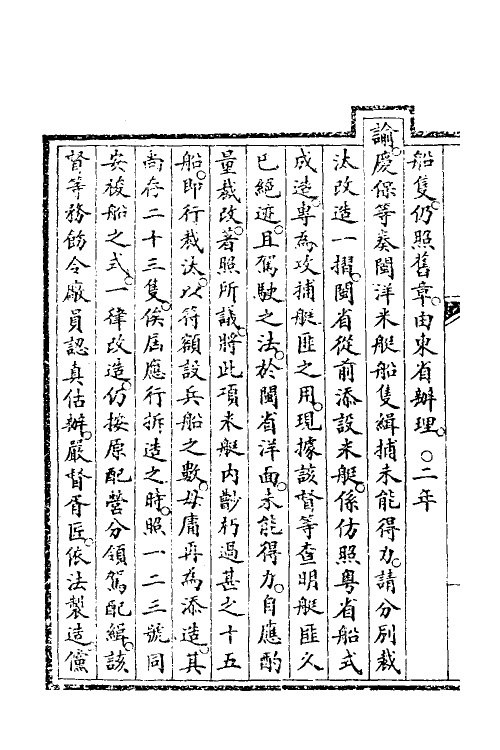 船隻。仍照舊章。由東省辦理。○二年
諭。慶保等奏閩洋米艇船隻緝捕未能得力。請分別裁
汰改造一摺。閩省從前添設米艇。係仿照粵省船式
成造。專為攻捕艇匪之用。現據該督等查明艇匪久
已絕迹。且駕駛之法。於閩省洋面。未能得力。自應酌
量裁改。著照所議。將此項米艇內黪朽過甚之十五
船。即行裁汰。以符額設兵船之數。毋庸再為添造。其
尚存二十三隻。俟屆應行拆造之時。照一二三號同
安梭船之式。一律改造。仍按原配營分領駕配緝。該
督等務飭令廠員認真估辦。嚴督胥匠。依法製造。儻